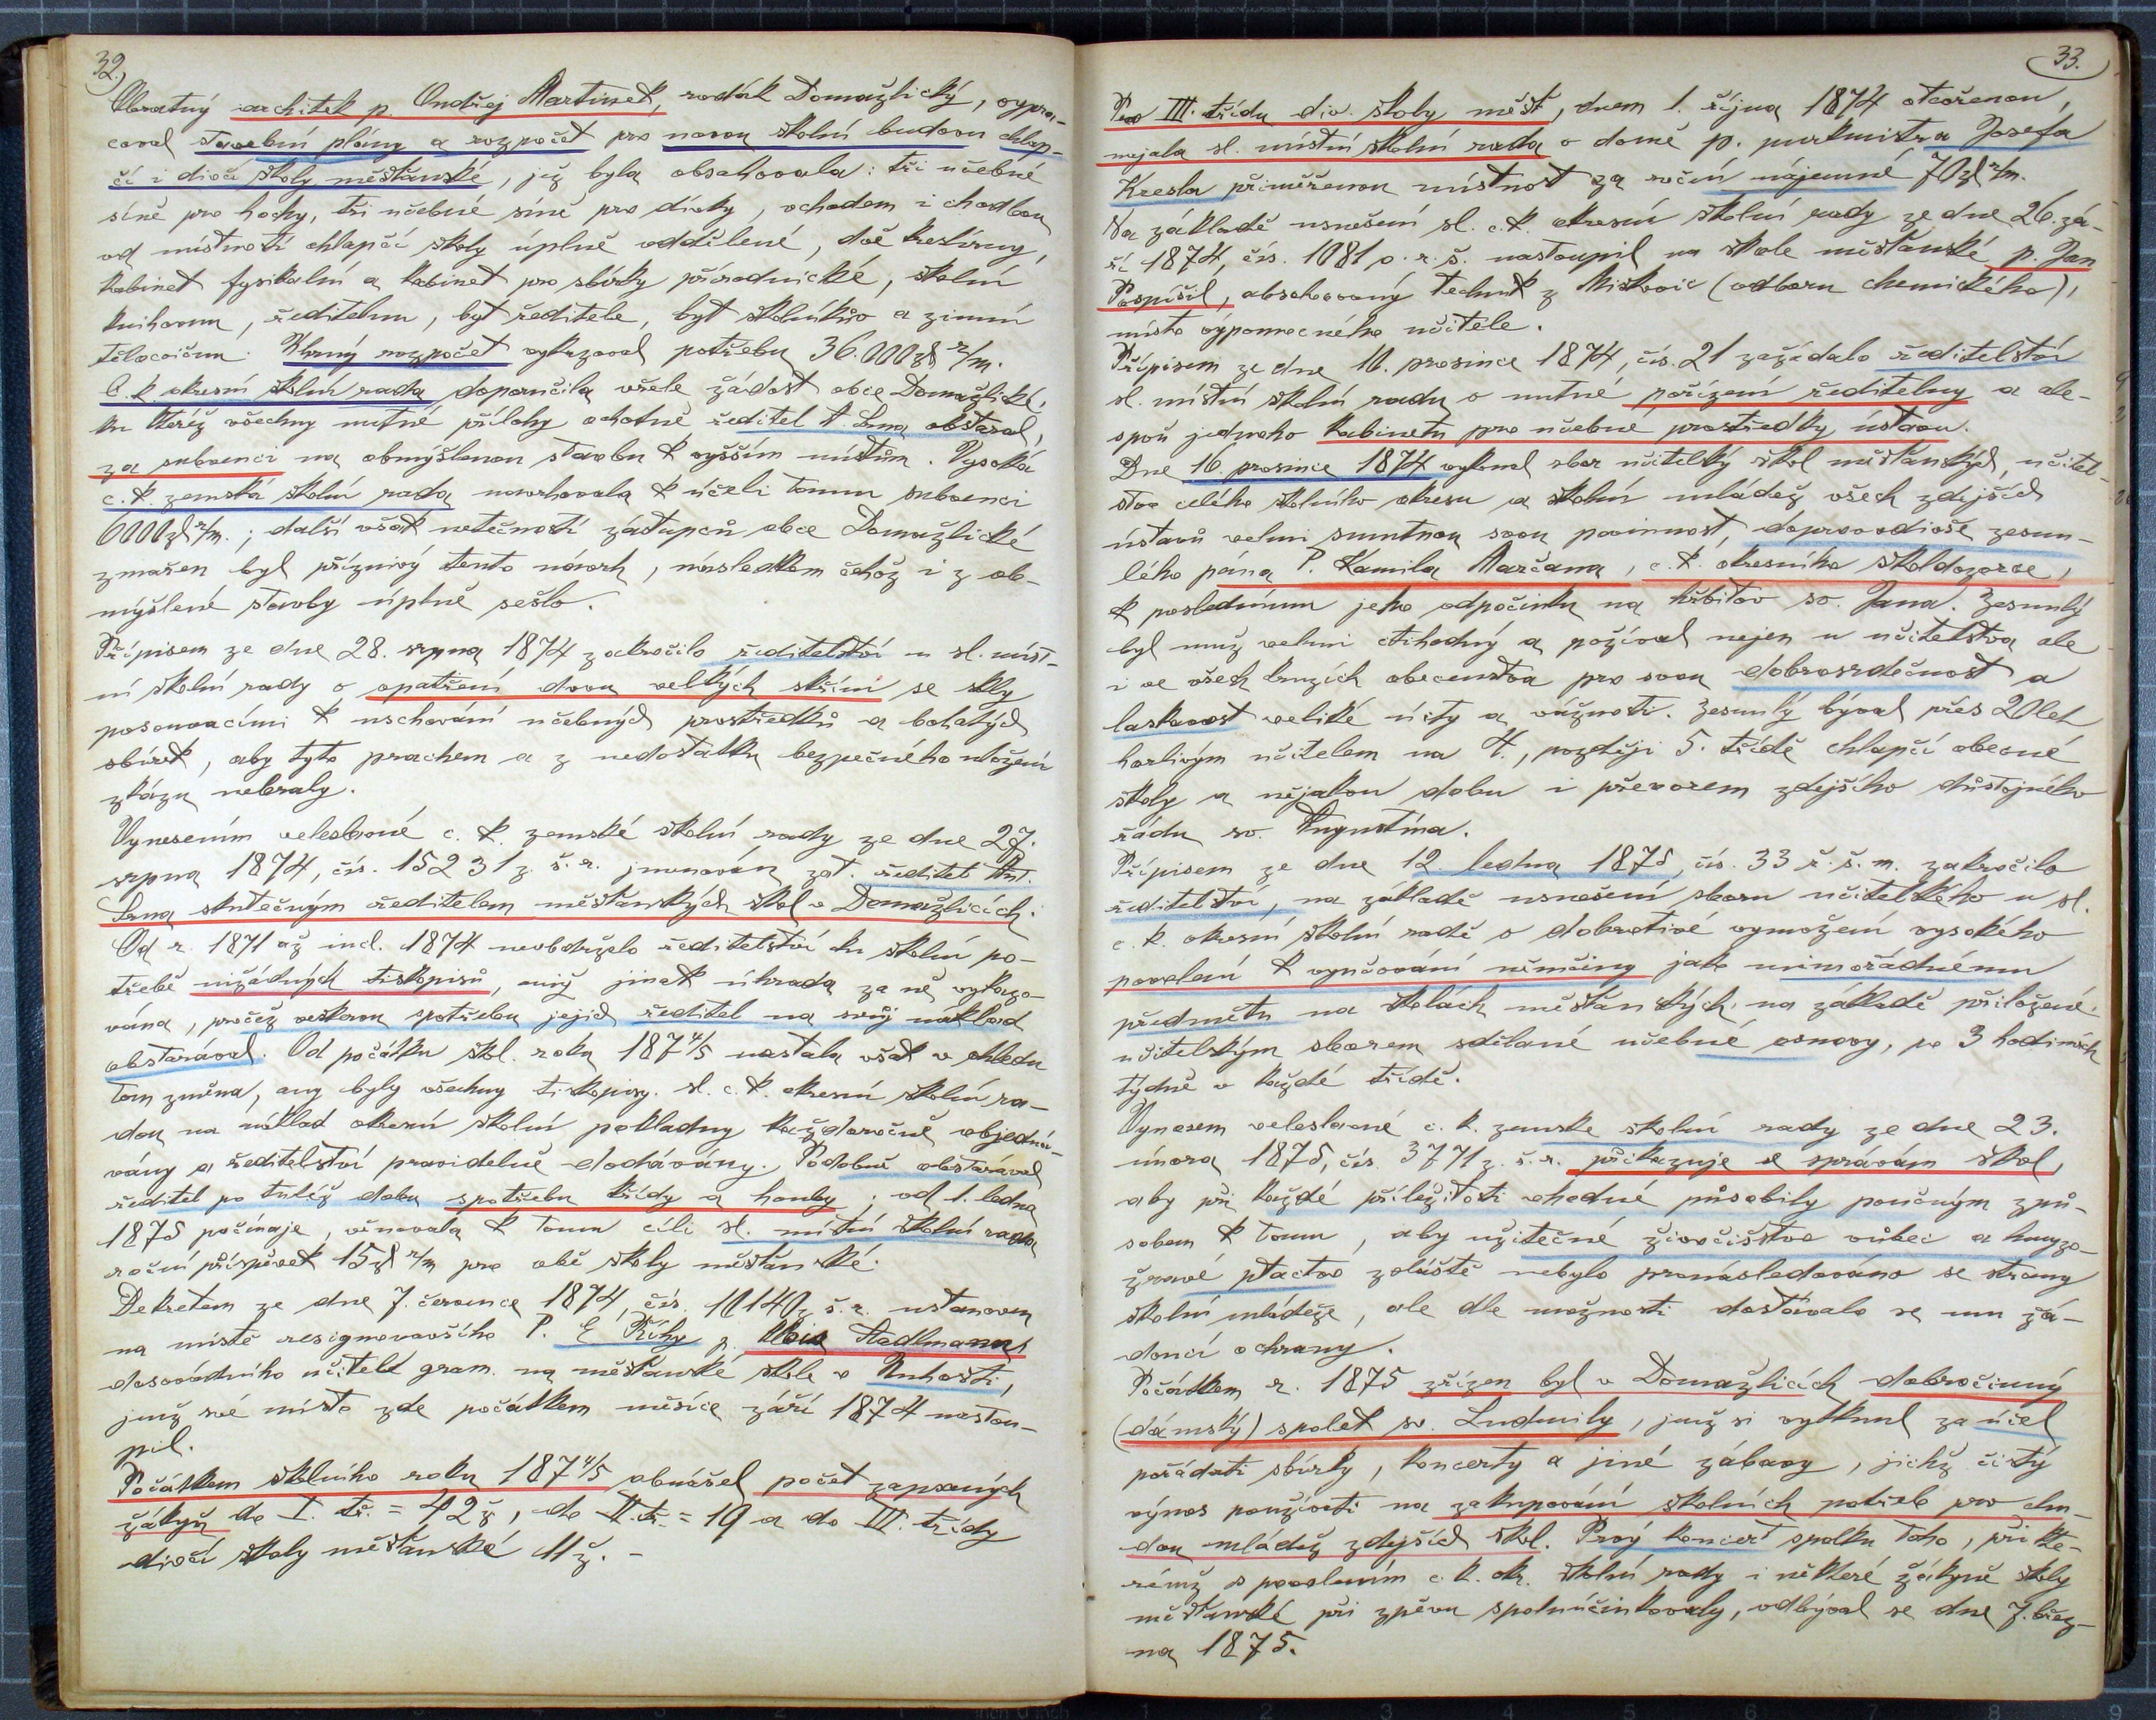 32.)
Obratný architek p. Ondřej Martinek, rodák Domažlický, vypra-
coval stavební plány a rozpočet pro novou školní budovu chlap-
čí i dívčí školy měšťanské, jež byla obsahovala: tři učebné
síně pro hochy, tři učebné síně pro dívky, vchodem i chodbou
od místností chlapčí školy úplně oddělené, dvě kreslírny,
kabinet fysikalní a kabinet pro sbírky přírodnické, školní
knihovnu, ředitelnu, byt ředitele, byt školníkův a zimní
tělocvičnu. Uhrný rozpočet vykazoval potřebu 36.000 zl r/m.
C. k. okresní školní rada doporučila vřele žádost obce Domažlické,
ku kteréž všechny nutné přílohy ochotně ředitel A. Srna obstaral,
za subvenci na obmýšlenou stavbu k vyšším místům. Vysoká
c. k. zemská školní rada navrhovala k účeli tomu subvenci
6000 zl r/m.; další však netečností zástupců obce Domažlické
zmařen byl příznivý tento návrh, následkem čehož i z ob-
mýšlené stavby úplně sešlo.
Přípisem ze dne 28. srpna 1874 zakročilo ředitelství u sl. míst-
ní školní rady o opatření dvou velkých skříní se skly
posouvacími k uschování učebných prostředků a bohatých
sbírek, aby tyto prachem a z nedostatku bezpečného uložení
zkázu nebraly.
Vynesením veleslavné c. k. zemské školní rady ze dne 27.
srpna 1874, čís. 15231 z. š. r. jmenován zat. ředitel Ant.
Srna skutečným ředitelem měšťanských škol v Domažlicích.
Od r. 1871 až incl. 1874 neobdrželo ředitelství ku školní po-
třebě nižádných tiskopisů, aniž jinak úhrada za ně vykazo-
vána, pročež veškerou spotřebu jejich ředitel na svůj náklad
obstarával. Od počátku škl. roku 187 4/5 nastala však v ohledu
tom změna, any byly všechny tiskopisy sl. c. k. okresní školní ra-
dou na náklad okresní školní pokladny každoročně objedná-
vány a ředitelství pravidelně dodávány. Podobně obstarával
ředitel po tutéž dobu spotřebu křídy a houby; od 1. ledna
1875 počínaje, věnovala k tomu cíli sl. místní školní rada
roční příspěvek 15 zl r/m pro obě školy měšťanské.
Dekretem ze dne 7. července 1874, čís. 10140 z. š. r. ustanoven
na místě resignovavšího P. E. Říhy p. Alois Stadlmann,
dosavádního učitele gram. na měšťanské škole v Unhošti,
jenž své místo zde počátkem měsíce září 1874 nastou-
pil.
Počátkem školního roku 187 4/5 obnášel počet zapsaných
žákyň do I. tř. = 42 ž, do II. tř. = 19 a do III. třídy
dívčí školy měšťanské 11 ž. -
33.
Pro III. třídu dív. školy měšť, dnem 1. října 1874 otevřenou,
najala sl. místní školní rada v domě p. purkmistra Josefa
Kresla přiměřenou místnost za roční nájemné 70 zl r/m.
Na základě usnešení sl. c. k. okresní školní rady ze dne 26. zá-
ří 1874, čís. 1081 o. r. š. nastoupil na škole měšťanské p. Jan
Pospíšil, absolvovaný technik z Mirkovic (odboru chemického),
místo výpomocného učitele.
Přípisem ze dne 10. prosince 1874, čís. 21 zažádalo ředitelství
sl. místní školní radu o nutné pořízení ředitelny a ale-
spoň jednoho kabinetu pro učebné prostředky ústavu.
Dne 16. prosince 1874 vykonal sbor učitelský škol měšťanských, učitel-
stvo celého školního okresu a školní mládež všech zdejších
ústavů velmi smutnou svou povinnost, doprovodivše zesnu-
lého pána P. Kamila Marčana, c. k. okresního školdozorce,
k poslednímu jeho odpočinku na hřbitov sv. Jana. Zesnulý
byl muž velmi ctihodný a požíval nejen u učitelstva ale
i ve všech kruzích obecenstva pro svou dobrosrdečnost a
laskavost veliké úcty a vážnosti. Zesnulý býval přes 20 let
horlivým učitelem na 4., později 5. třídě chlapčí obecné
školy a nějakou dobu i převorem zdejšího důstojného
řádu sv. Augustina.
Přípisem ze dne 12 ledna 1875, čís. 33 ř. š. m. zakročilo
ředitelství, na základě usnešení sboru učitelského u sl.
c. k. okresní školní radě o dobrotivé vymožení vysokého
povolení k vyučování němčiny jako mimořádnému
předmětu na školách měšťanských na základě přiložené,
učitelským sborem sdělané učebné osnovy, po 3 hodinách
týdně v každé třídě.
Vynosem veleslavné c. k. zemské školní rady ze dne 23.
února 1875, čís. 3771 z. š. r. přikazuje se správám škol,
aby při každé příležitosti vhodné působily poučným způ-
sobem k tomu, aby užitečné živočišstvo vůbec a hmyzo-
žravé ptactvo zvláště nebylo pronásledováno se strany
školní mládeže, ale dle možnosti dostávalo se mu žá-
doucí ochrany.
Počátkem r. 1875 zřízen byl v Domažlicích dobročinný
(dámský) spolek sv. Ludmily, jenž si vytknul za účel
pořádati sbírky, koncerty a jiné zábavy, jichž čistý
výnos používati na zakupování školních potřeb pro chu-
dou mládež zdejších škol. Prvý koncert spolku toho, při kte-
rémž s povolením c. k. okr. školní rady i některé žákyně školy
měšťanské při zpěvu spoluúčinkovaly, odbýval se dne 7. břez-
na 1875.